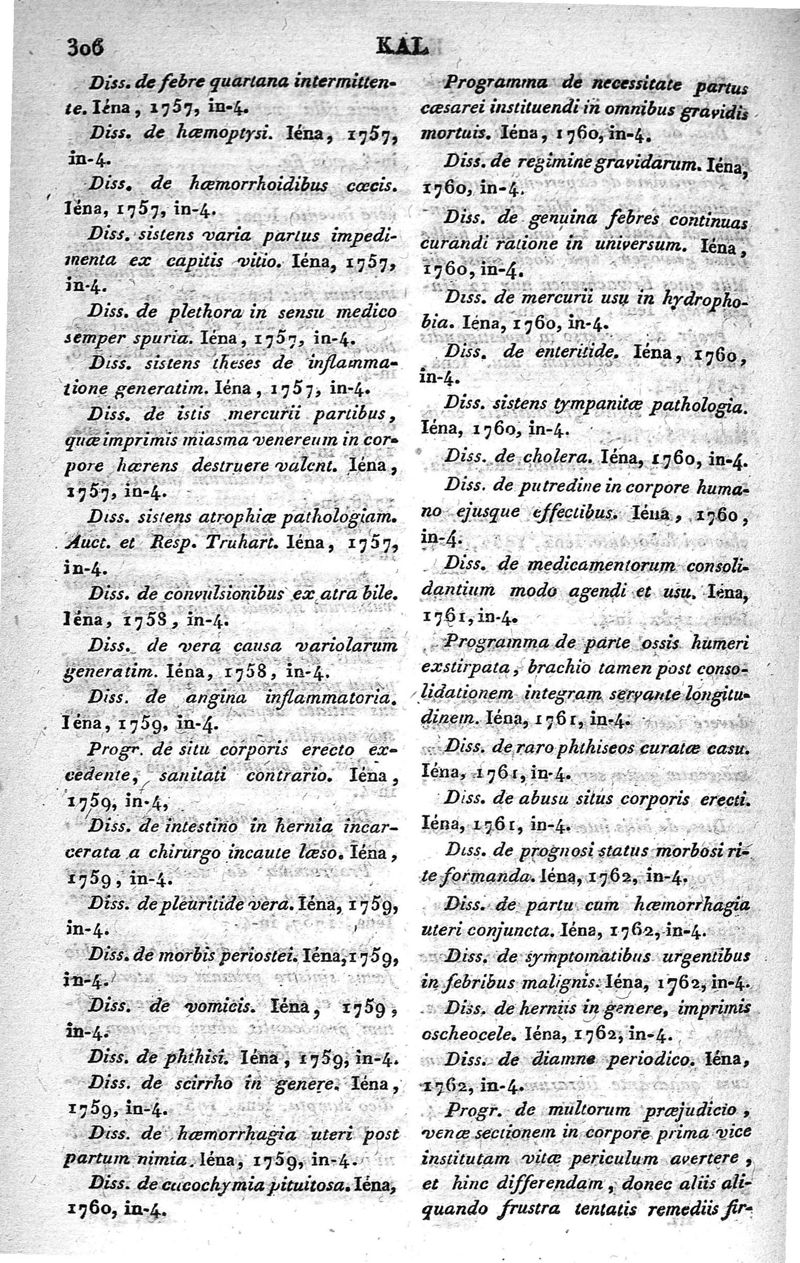 306
KAL
Diss. de febre quartana intermitten-
te. Iéna, 1757, in-4.
Diss. de hæmoptysi. Iéna, 1757,
in-4.
Diss. de hæmorrhoidibus cœcis.
Iéna, 1757, in-4.
Diss. sistens varia partus impedi-
menta ex capitis vitio. Iéna, 1757,
in-4.
Diss. de plethora in sensu medico
semper spuria. Iéna, 1757, in-4.
Diss. sistens theses de inflamma-
tione generatim. Iéna, 1757, in-4.
Diss. de istis mercurii partibus,
quæ imprimis miasma venereum in cor-
pore hærens destruere valent. Iéna,
1757, in-4.
Diss. sistens atrophiæ pathologiam.
Auct. et Resp. Truhart. Iéna, 1757,
in-4.
Diss. de convulsionibus ex atra bile.
Iéna, 1758, in-4.
Diss. de vera causa variolarum
generatim. Iéna, 1758, in-4.
Diss. de angina inflammatoria.
Iéna, 1759, in-4.
Progr. de situ corporis erecto ex-
cedente, sanitati contrario. Iéna,
1759, in-4,
Diss. de intestino in hernia incar-
cerata a chirurgo incaute læso. Iéna,
1759, in-4.
Diss. de pleuritide vera. Iéna, 1759,
in-4.
Diss. de morbis periostei. Iéna, 1759,
in-4.
Diss. de vomicis. Iéna, 1759,
in-4.
Diss. de phthisi. Iéna, 1759, in-4.
Diss. de scirrho in genere. Iéna,
1759, in-4.
Diss. de hæmorrhagia uteri post
partum nimia. Iéna, 1759, in-4.
Diss. de cacochymia pituitosa. Iéna,
1760, in-4.
Programma de necessitate partus
cæsarei instituendi in omnibus gravidis
mortuis. Iéna, 1760, in-4.
Diss. de regimine gravidarum. Iéna,
1760, in-4.
Diss. de genuina febres continuas
curandi ratione in universum. Iéna,
1760, in-4.
Diss. de mercurii usu in hydropho-
bia. Iéna, 1760, in-4.
Diss. de enteritide. Iéna, 1760,
in-4.
Diss. sistens tympanitæ pathologia.
Iéna, 1760, in-4.
Diss. de cholera. Iéna, 1760, in-4.
Diss. de putredine in corpore huma-
no ejusque effectibus. Iéna, 1760,
in-4.
Diss. de medicamentorum consoli-
dantium modo agendi et usu. Iéna,
1761, in-4.
Programma de parte ossis humeri
exstirpata, brachio tamen post conso-
lidationem integram servante longitu-
dinem. Iéna, 1761, in-4.
Diss. de raro phthiseos curatæ casu.
Iéna, 1761, in-4.
Diss. de abusu situs corporis erecti.
Iéna, 1761, in-4.
Diss. de prognosi status morbosi ri-
te formanda. Iéna, 1762, in-4.
Diss. de partu cum hæmorrhagia
uteri conjuncta. Iéna, 1762, in-4.
Diss. de symptomatibus urgentibus
in febribus malignis. Iéna, 1762, in-4.
Diss. de herniis in genere, imprimis
oscheocele. Iéna, 1762, in-4.
Diss. de diamne periodico. Iéna,
1762, in-4.
Progr. de multorum præjudicio,
venæ sectionem in corpore prima vice
institutam vitæ periculum avertere,
et hinc differendam, donec aliis ali-
quando frustra tentatis remediis fir-